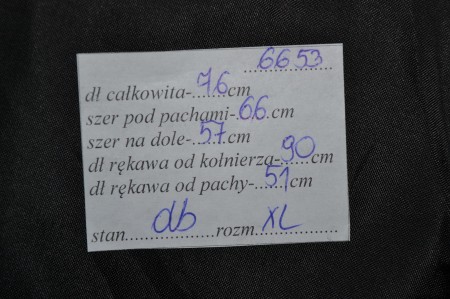 6653
dł całkowita-76cm
szer pod pachami-66cm
szer na dole-57cm
dł rękawa od kołnierza-90cm
dł rękawa od pachy-51cm
stan db rozm XL